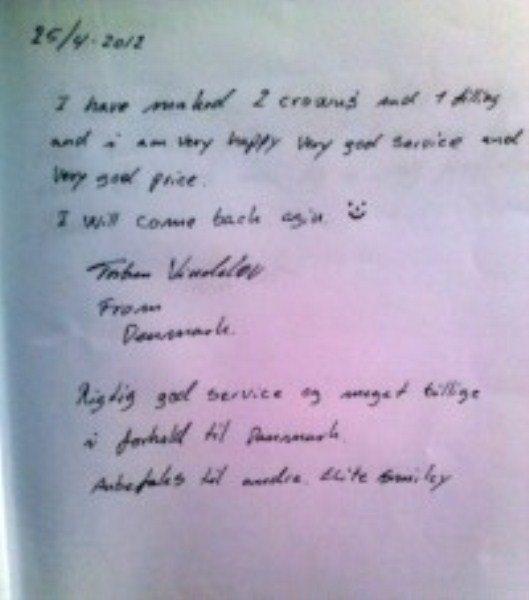 25/4-2012
I have maked 2 crowns and 1 filling
and i am very happy very god service and
very god price.
I will come back agin. :)
Torben
From
Danmark.
Rigtig god service og meget billige
i forhold til Danmark.
Anbefales til andre. Elite Smiley